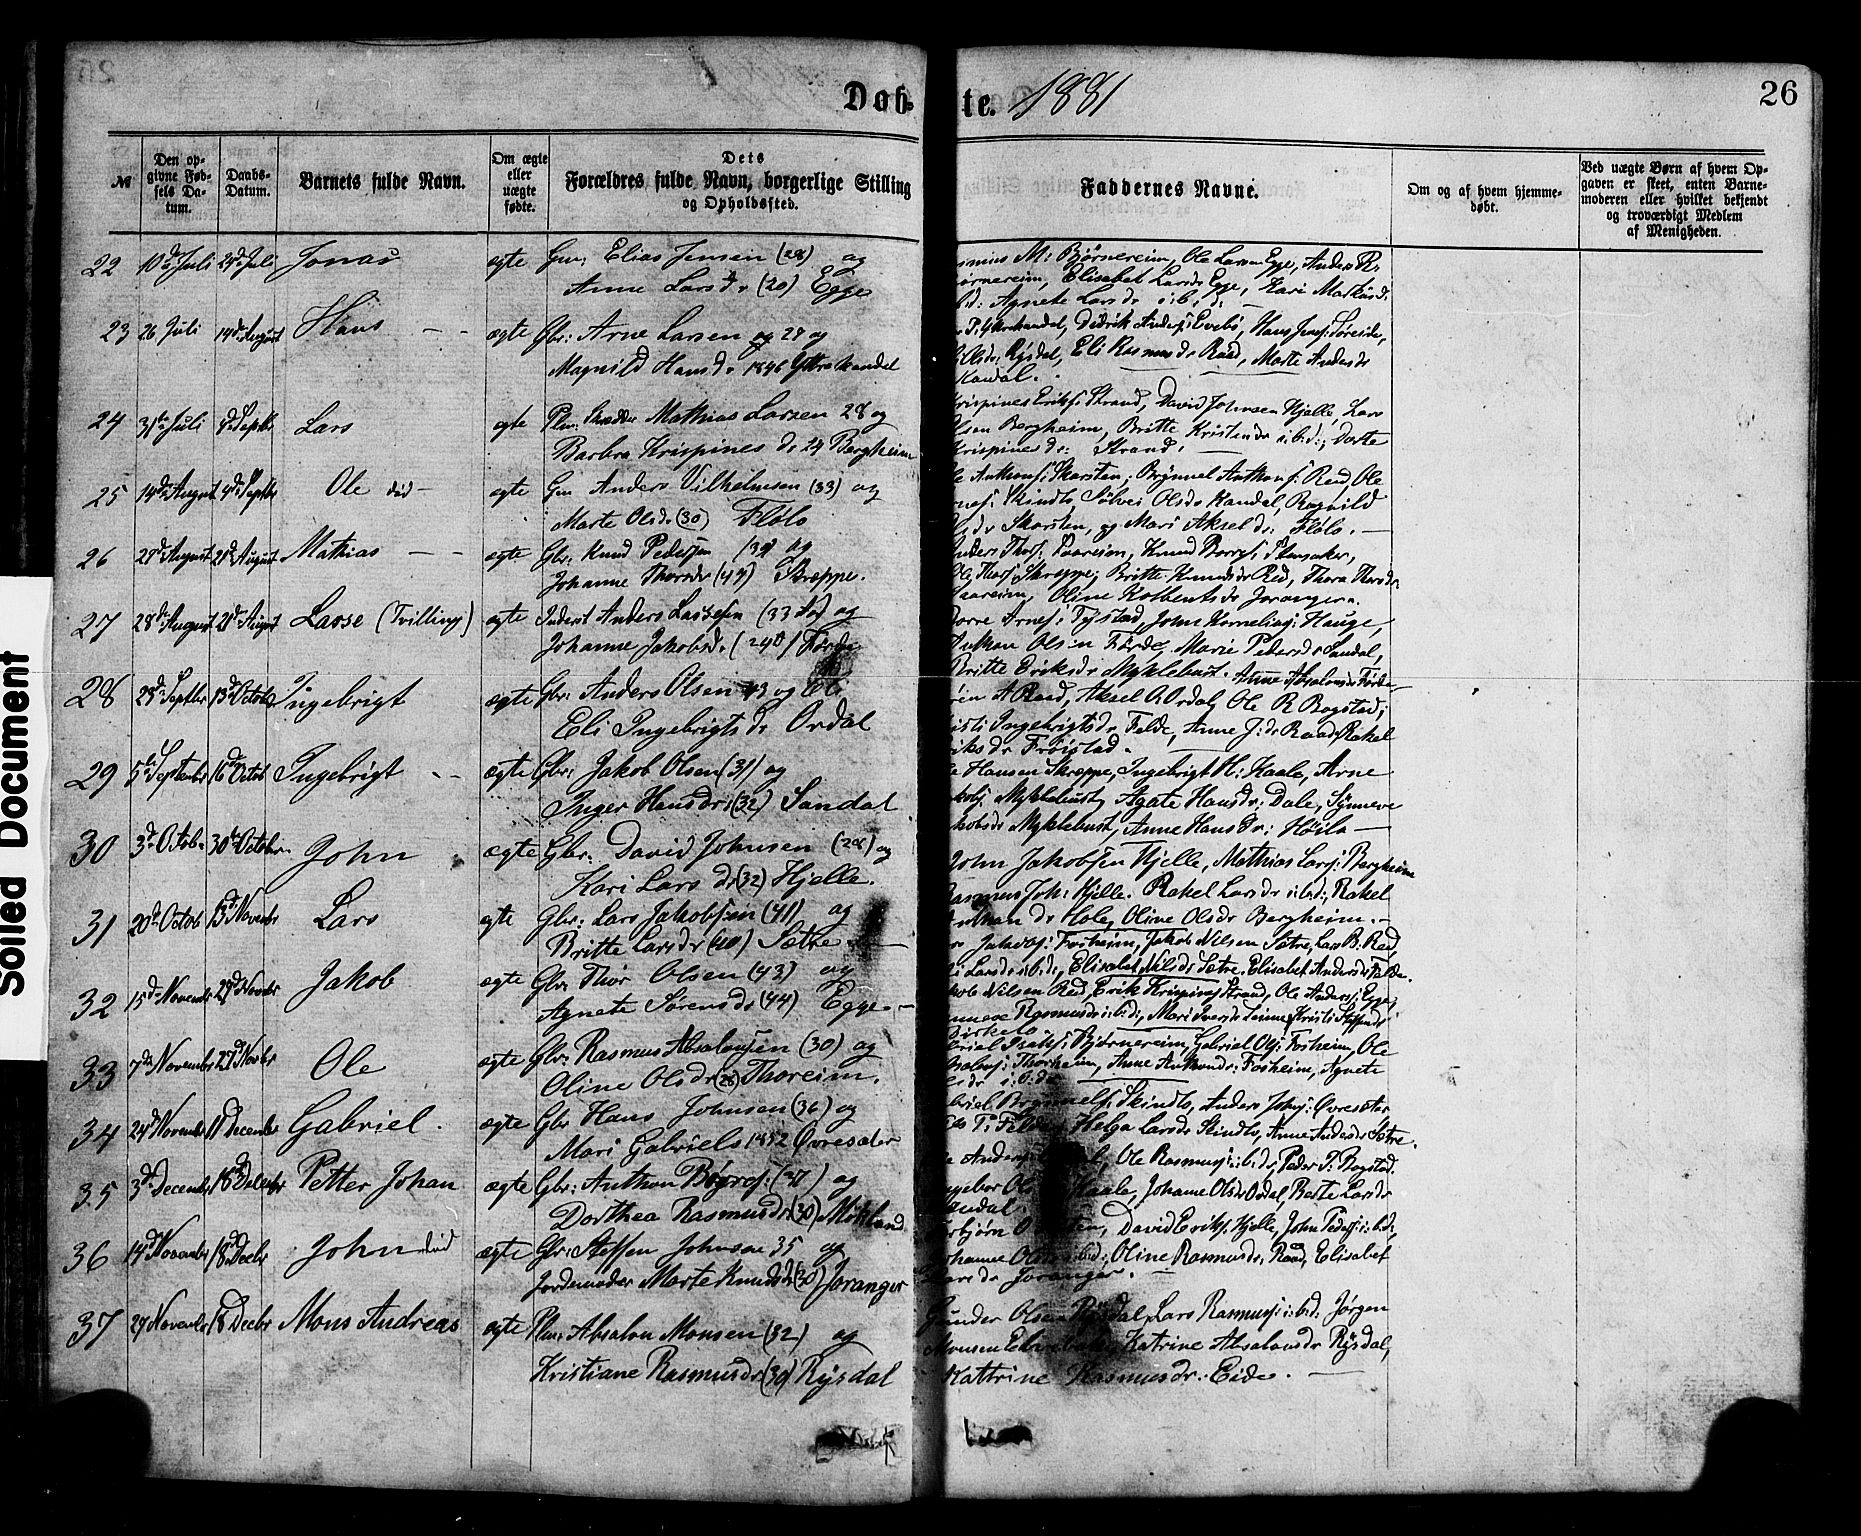 Døb-
te. 1881
26
№
Den opgivne Fødsels Datum.
Daabs-Datum.
Barnets fulde Navn.
Om ægte eller uægte fødte.
Dets Forældres fulde Navn, borgerlige Stilling og Opholdssted.
Faddernes Navne.
Om og af hvem hjemmedøbt.
Ved uægte Børn af hvem Opgaven er skeet, enten Barnemoderen eller hvilket bekjendt og troværdigt Medlem af Menigheden.
22 10de Juli 24de Juli Jonas ægte Gm: Elias Jensen (28) og
Anne Larsdr (20) Egge
M: Bjørnereim, Ole Larsen Egge, Anders R:
Bjørnereim, Elisabet Larsdr Egge, Kari Markusd.
Agnete Larsdr i.b.d.
23 26 Juli 14de August Hans ægte Gbr: Arne Larsen 27 og
Magnild Hansd. 1846 Ytrekandal
P: Ytrekandal, Didrik Anders: Evebø, Hans Jens: Søreide,
Rysdal, Eli Rasmusdr Raad, Marte Andersdr
Kandal.
24 31te Juli 4de Septbr Lars ægte Plm: Skrædder Mathias Larsen 28 og
Barbra Krispinesdr 24 Bergheim
Krispines Eriks: Strand, David Johnsen Hjelle, Lars
Olsen Bergheim, Britte Kristendr i.b.d.; Dorte
Krispinesdr: Strand.
25 14de August 4de Septbr Ole død ægte Gm Anders Vilhelmsen (33) og
Marte Olsdr (30) Flølo
Anthons: Skarsten; Brynnel Anthons: Red, Ole
Skindlo, Sølvei Olsdr Kandal, Ragnild
Skarsten, og Mari Akseldr: Fløló.
26 27de August 21de August Mathias ægte Gbr: Knud Pedersen (39) og
Johanne Thorsdr (47) Skreppe.
Anders Thors: Paareim, Knud Borres: Stensaker,
Ole Thors: Skreppe; Britte Knudsdr Red, Thora Thorsdr
Paareim, Oline Kolbentsdr Joranger.
27 28de August 21de August Lasse (Tvilling) ægte Inderst Anders Lassesen (33 Aar) og
Johanne Jakobsd. (24) Førde
Borre Arnes: Tystad, John Kornelius: Hauge,
Anthon Olsen Førde, Marie Pedersdr Sandal,
Britte Eriksdr Myklebust. Anne Absalonsdr Førde
28 23de Septbr 13de Octob Ingebrigt ægte Gbr: Anders Olsen 43 og
Eli Ingebrigtsdr Ordal
A Raad, Aksel A Ordal, Ole R Bogstad;
Kristi Ingebrigtsdr Felde, Anne J:dr Raad, Rakel
Eriksdr Frøistad.
29 5te Septembr 16de Octob Ingebrigt ægte Gbr: Jakob Olsen (31) og
Inger Hansdr: (32) Sandal
Hansen Skreppe, Ingebrigt H: Kaale, Arne
Jakobs: Myklebust, Agate Hansdr: Dale, Synneve
Jakobsdr Myklebust, Anne Hansdr: Høilo
30 3de Octob. 30te Octobr. John ægte Gbr: David Johnsen (28) og
Kari Larsdr (32) Hjelle.
John Jakobsen Hjelle, Mathias Lars: Bergheim
Rasmus Joh: Hjelle. Rakel Larsdr i.b.d., Rakel
Hole, Oline Olsdr Bergheim.
31 20de Octob 13de Novembr Lars ægte Gbr: Lars Jakobsen (41) og
Britte Larsdr (40) Sætre
Jakobs: Fosheim, Jakob Nilsen Sætre, Lars B. Red,
Larsdr i.b.d., Elisabet Nilsdr Sætre. Elisabet Andersdr Felde.
32 15de Novembr 27de Novbr Jakob ægte Gbr: Thor Olsen (43) og
Agnete Sørensdr (44) Egge.
Jakob Nilsen Red, Erik Krispines Strand, Ole Anders: Egge,
Rasmusdr i.b.d., Mari Iversdr Leinne, Kristi Steffensdr
Birkelo.
33 7de Novembr 27de Novbr Ole ægte Gbr: Rasmus Absalonsen (30) og
Oline Olsdr (28) Thoreim.
Bjørnereim, Gabriel Ols: Fosheim, Ole
Absalons: Thorheim, Anne Anthonsdr: Fosheim, Agnete
i.b.d.
34 24de Novembr 11de Decembr Gabriel. ægte Gbr Hans Johnsen (36) og
Mari Gabriels 1852 Øvreseter
Gabriel Brynnels: Skindlo, Anders Johns: Øvreseter
Helga Larsdr Skindlo, Anne Andersdr Sætre.
35 3de Decembr 18de Decembr Petter Johan ægte Gbr: Anthon Børres: (37) og
Dorthea Rasmusdr (30) Møkland
Anders Ole Rasmus: i.b.d., Peder P: Bogstad.
Ingebor Kaale, Johanne Olsdr Ordal, Berte Larsdr
Sandal.
36 14de Novembr 18de Decbr John død ægte Gbr: Steffen Johnsen 35 og
Jordemoder Marte Knudsdr (30) Joranger
Torbjørn David Eriks: Hjelle, John Peders: i.b.d.,
Johanne i.b.d.; Oline Rasmusdr, Raad, Elisabet
Larsdr Joranger.
37 27 Novembr 18 Decbr Mons Andreas ægte Plm: Absalon Monsen (32) og
Kristiane Rasmusdr (39) Rysdal
Gunder Olsen Rysdal, Lars Rasmus: i.b.d. Jørgen
Monsen Katrine Absalonsdr Rysdal,
Kattrine Rasmusdr: Eide.
Soiled Document